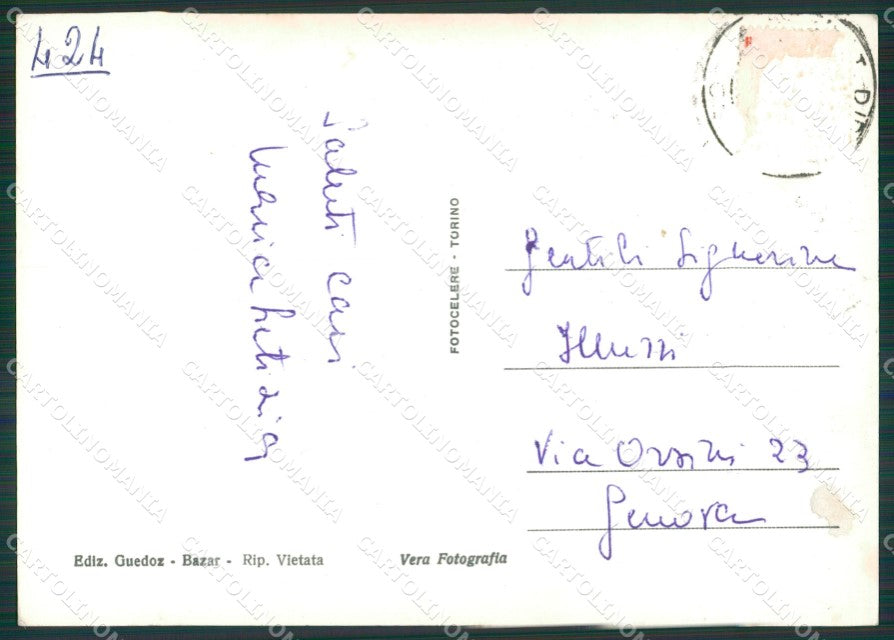 424
Saluti cari
Maria Letizia
FOTOCELERE - TORINO
Gentili Signorine
Via Orsini 23
Genova
Ediz. Guedoz - Bazar - Rip. Vietata
Vera Fotografia
CARTOLINOMANIA